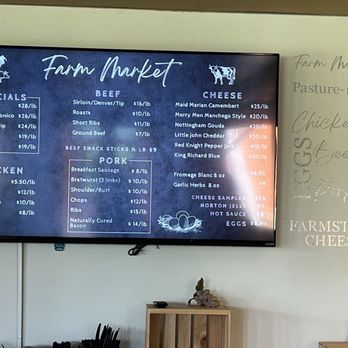 Farm Market
CIALS
$28/lb
$26/lb
$24/lb
$19/lb
$19/lb
CKEN
$5.50/lb
$12/lb
$10/lb
$8/lb
BEEF
Sirloin/Denver/Tip $16/lb
Roasts $10/lb
Short Ribs $11/lb
Ground Beef $7/lb
BEEF SNACK STICKS ¼ LB $9
PORK
Breakfast Sausage $8/lb
Bratwurst (3 links) $10/lb
Shoulder/Butt $10/lb
Chops $12/lb
Ribs $15/lb
Naturally Cured
Bacon $14/lb
CHEESE
Maid Marian Camembert $25/lb
Merry Men Manchego Style $20/lb
Nottingham Gouda $20/lb
Little John Cheddar $20/lb
Red Knight Pepper Jack $20/lb
King Richard Blue $20/lb
Fromage Blanc 8 oz
Garlic Herbs 8 oz
CHEESE SAMPLER
NORTON JELLY
HOT SAUCE
EGGS
Farm Ma
Pasture-r
Chicke
EGGS
Bee
Por
FARMST
CHEES